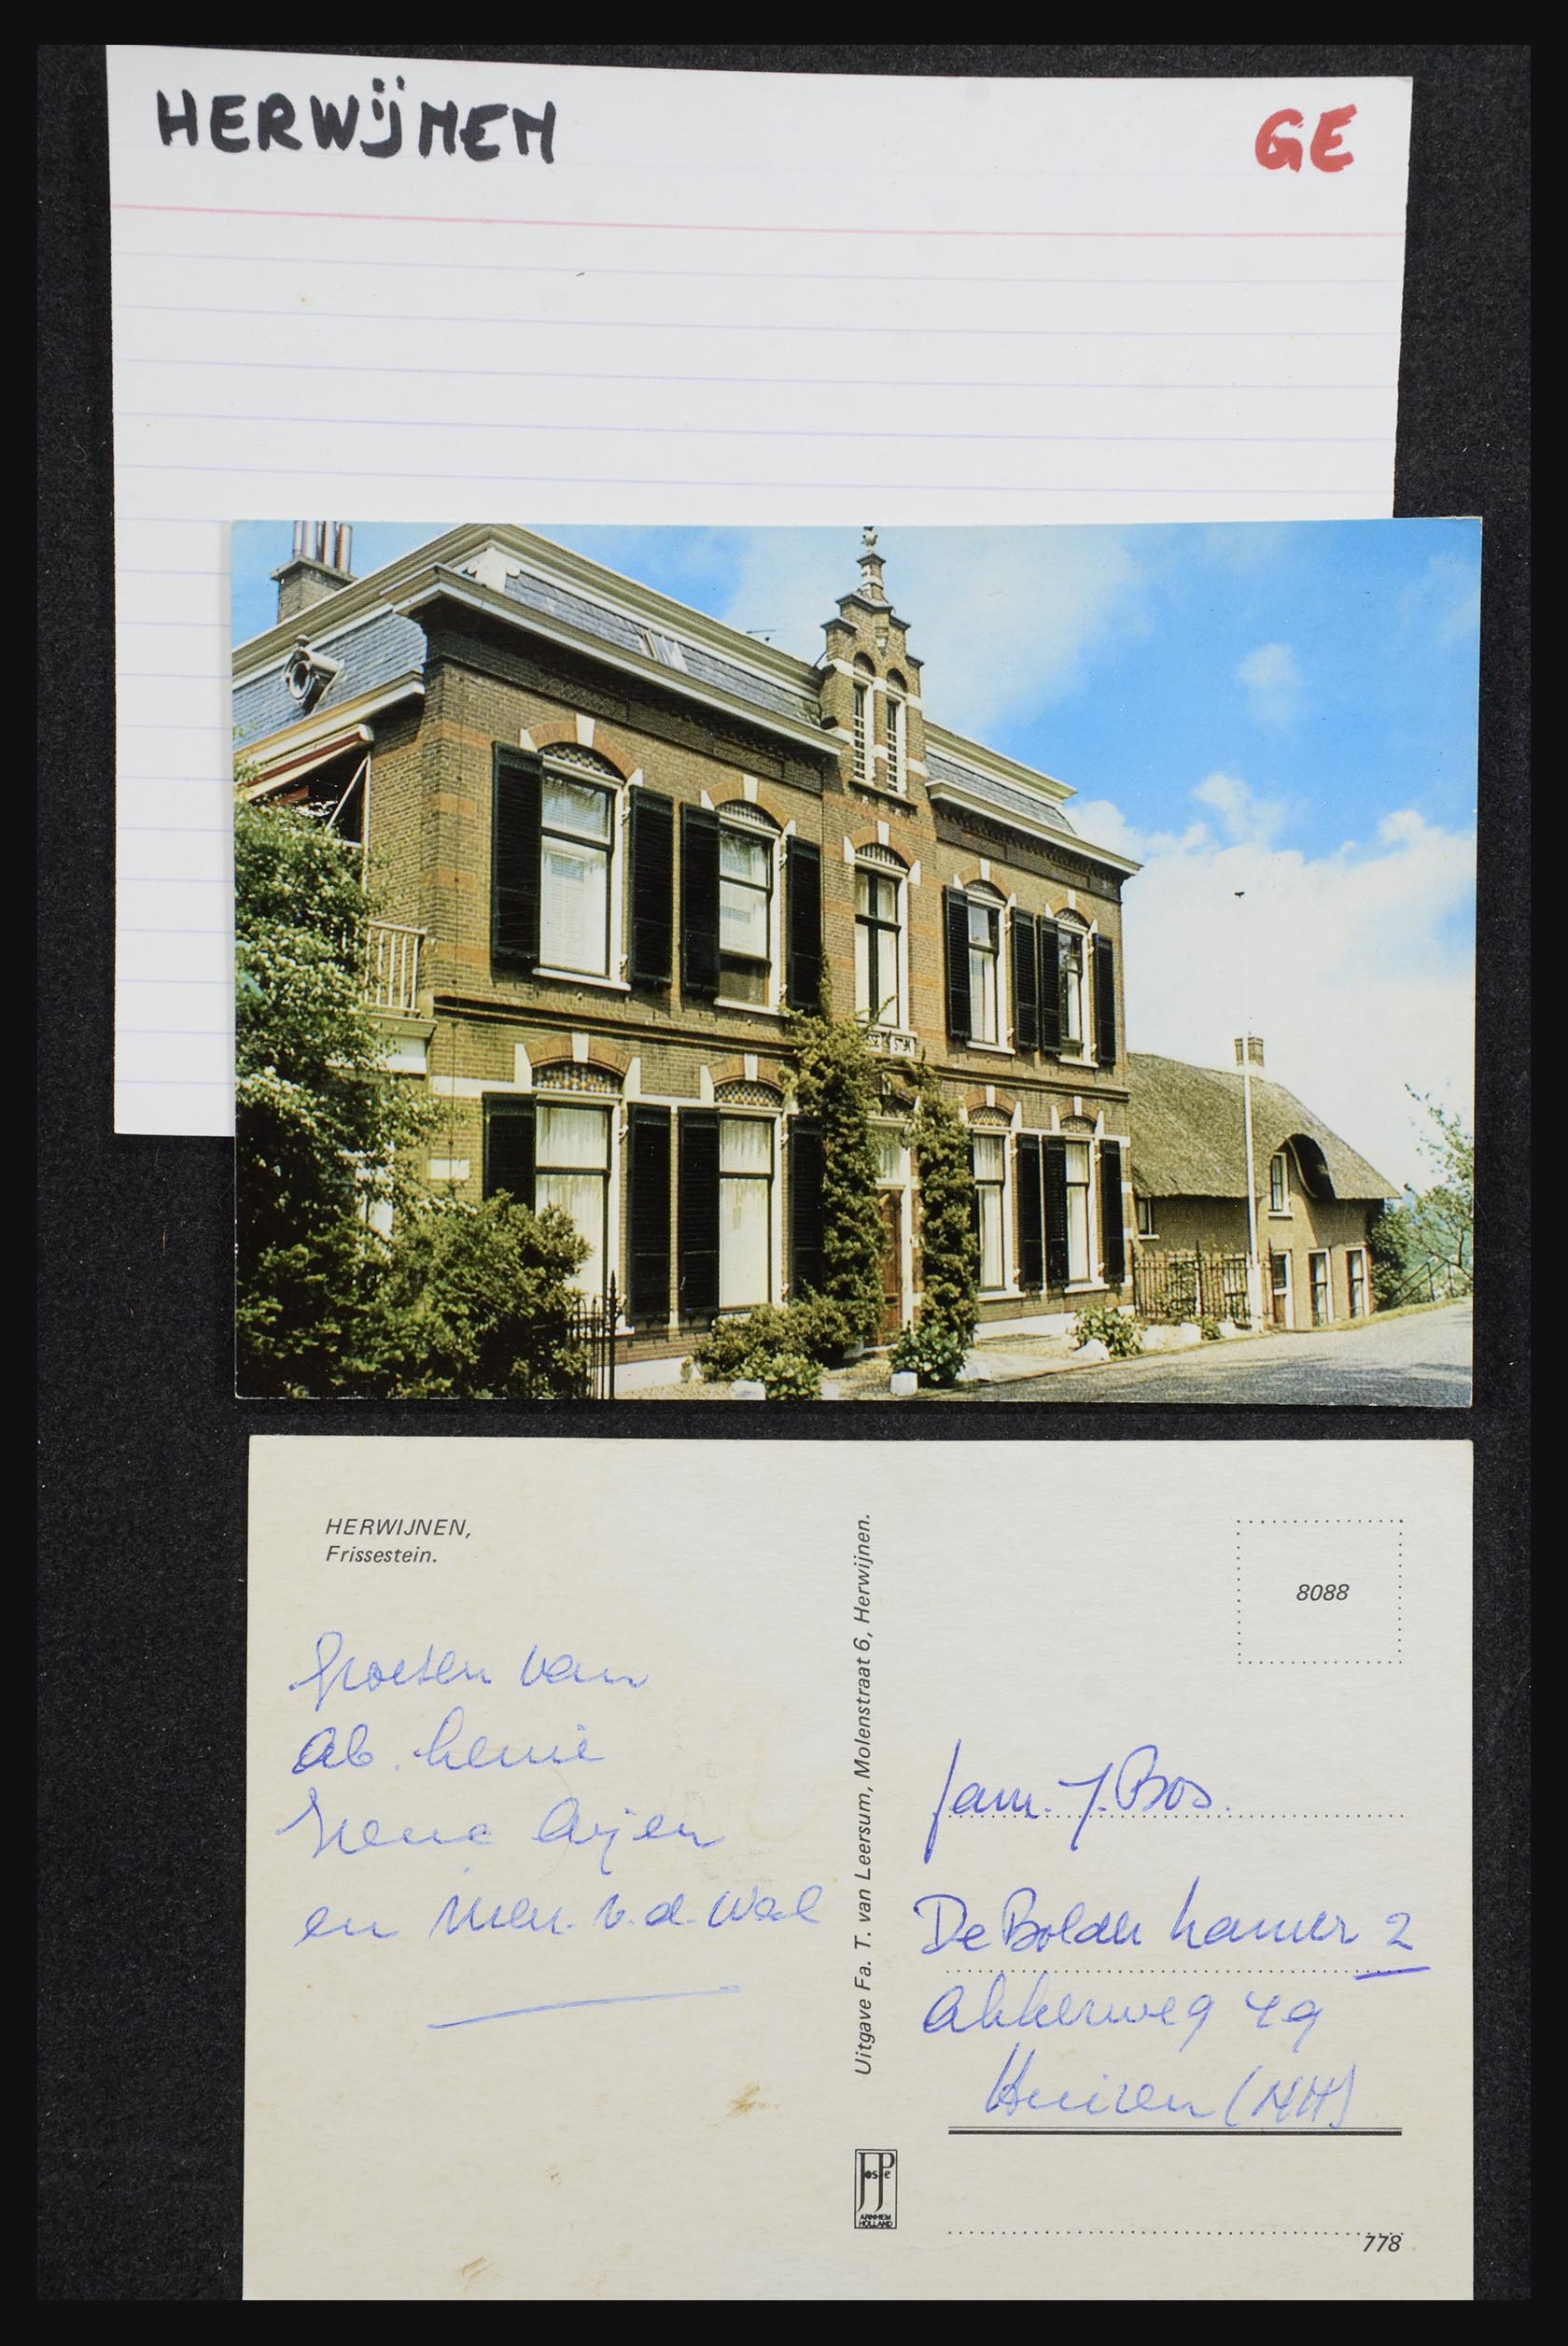 HERWIJNEN
GE
HERWIJNEN,
Frissestein.
Groeten van
Ab. Henie
Irene Arjen
en Men. v.d. Wal
Uitgave Fa. T. van Leersum, Molenstraat 6, Herwijnen.
8088
Fam. J. Bos.
De Bolder kamer 2
Akkerweg 49
Huizen (NH)
JosPe
ARNHEM
HOLLAND
778